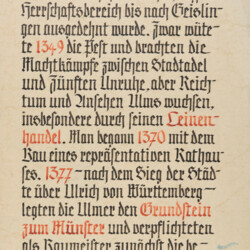 Herrschaftsbereich bis nach Geislin-
gen ausgedehnt wurde. Zwar wüte-
te 1349 die Pest und brachten die
Machtkämpfe zwischen Stadtadel
und Zünften Unruhe, aber Reich-
tum und Ansehen Ulms wuchsen,
insbesondere durch seinen Leinen-
handel. Man begann 1370 mit dem
Bau eines repräsentativen Rathau-
ses. 1377 - nach dem Sieg der Städ-
te über Ulrich von Württemberg -
legten die Ulmer den Grundstein
zum Münster und verpflichteten
als Baumeister zunächst die be-